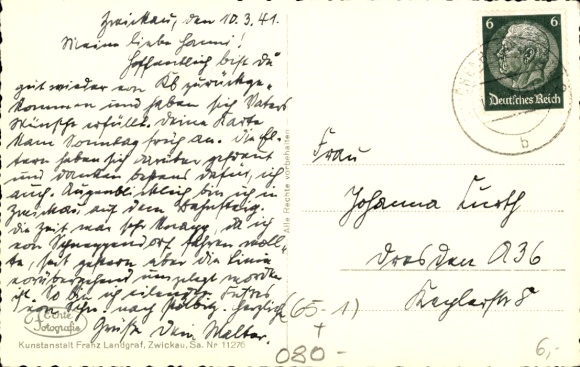 Zwickau, den 10.3.41.
Meine liebe Hanni!
Hoffentlich bist du
gut wieder von Kb zurückge-
kommen und haben sich Vaters
Wünsche erfüllt. Deine Karte
kam Sonntag früh an. Die El-
tern haben sich darüber gefreut
und danken bestens dafür, ich
auch. Augenblicklich bin ich in
Zwickau auf dem Bahnsteig.
Die Zeit war sehr knapp, da ich
von fahren woll-
te, seit gestern aber die Linie
vorübergehend umgelegt worden
ist. So bin ich
von nach herzliche
Grüße Dein Walter.
Echte
Fotografie
Kunstanstalt Franz Landgraf, Zwickau, Sa. Nr 11276
Alle Rechte vorbehalten
6 6
Deutsches Reich
b
Frau
Johanna Kurth
Dresden A 36
Keglerstr 8
(65-1)
+
080-
6,-